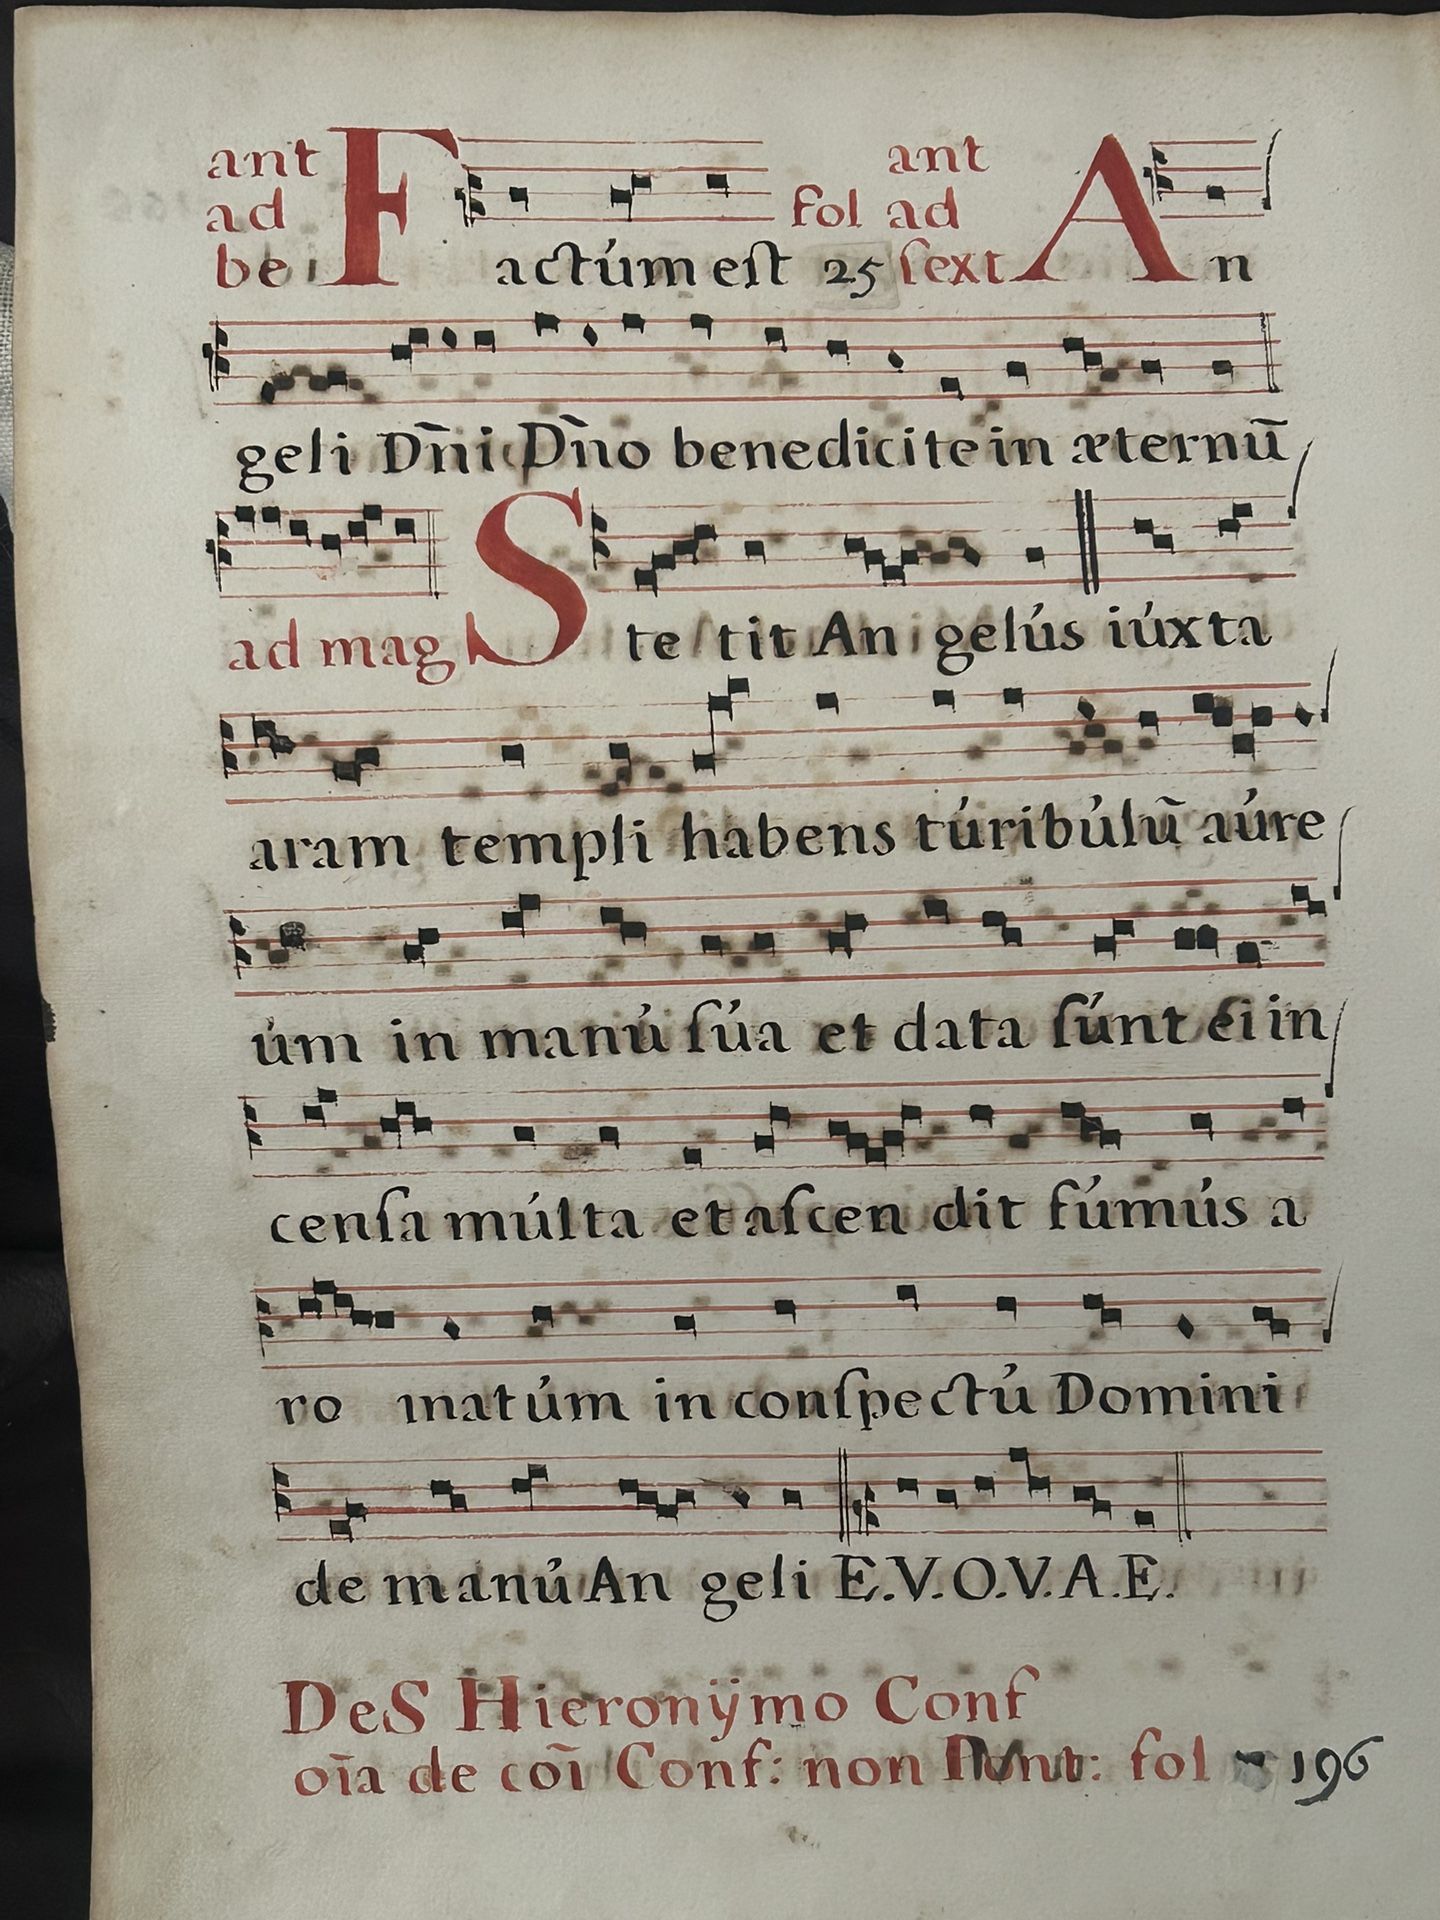 ant ant
ad fol ad
be Factúm est 25 sext An
geli Dñi Dño benedicite in æternū
ad mag Stetit An gelús iúxta
aram templi habens túribúlũ aúre
úm in manú súa et data súnt ei in
censa múlta et ascen dit fúmús a
ro matúm in conspectú Domini
de manú An geli E.V.O.V.A.E.
De S Hieronÿmo Conf
oīa de coī Conf: non Pont: fol 196